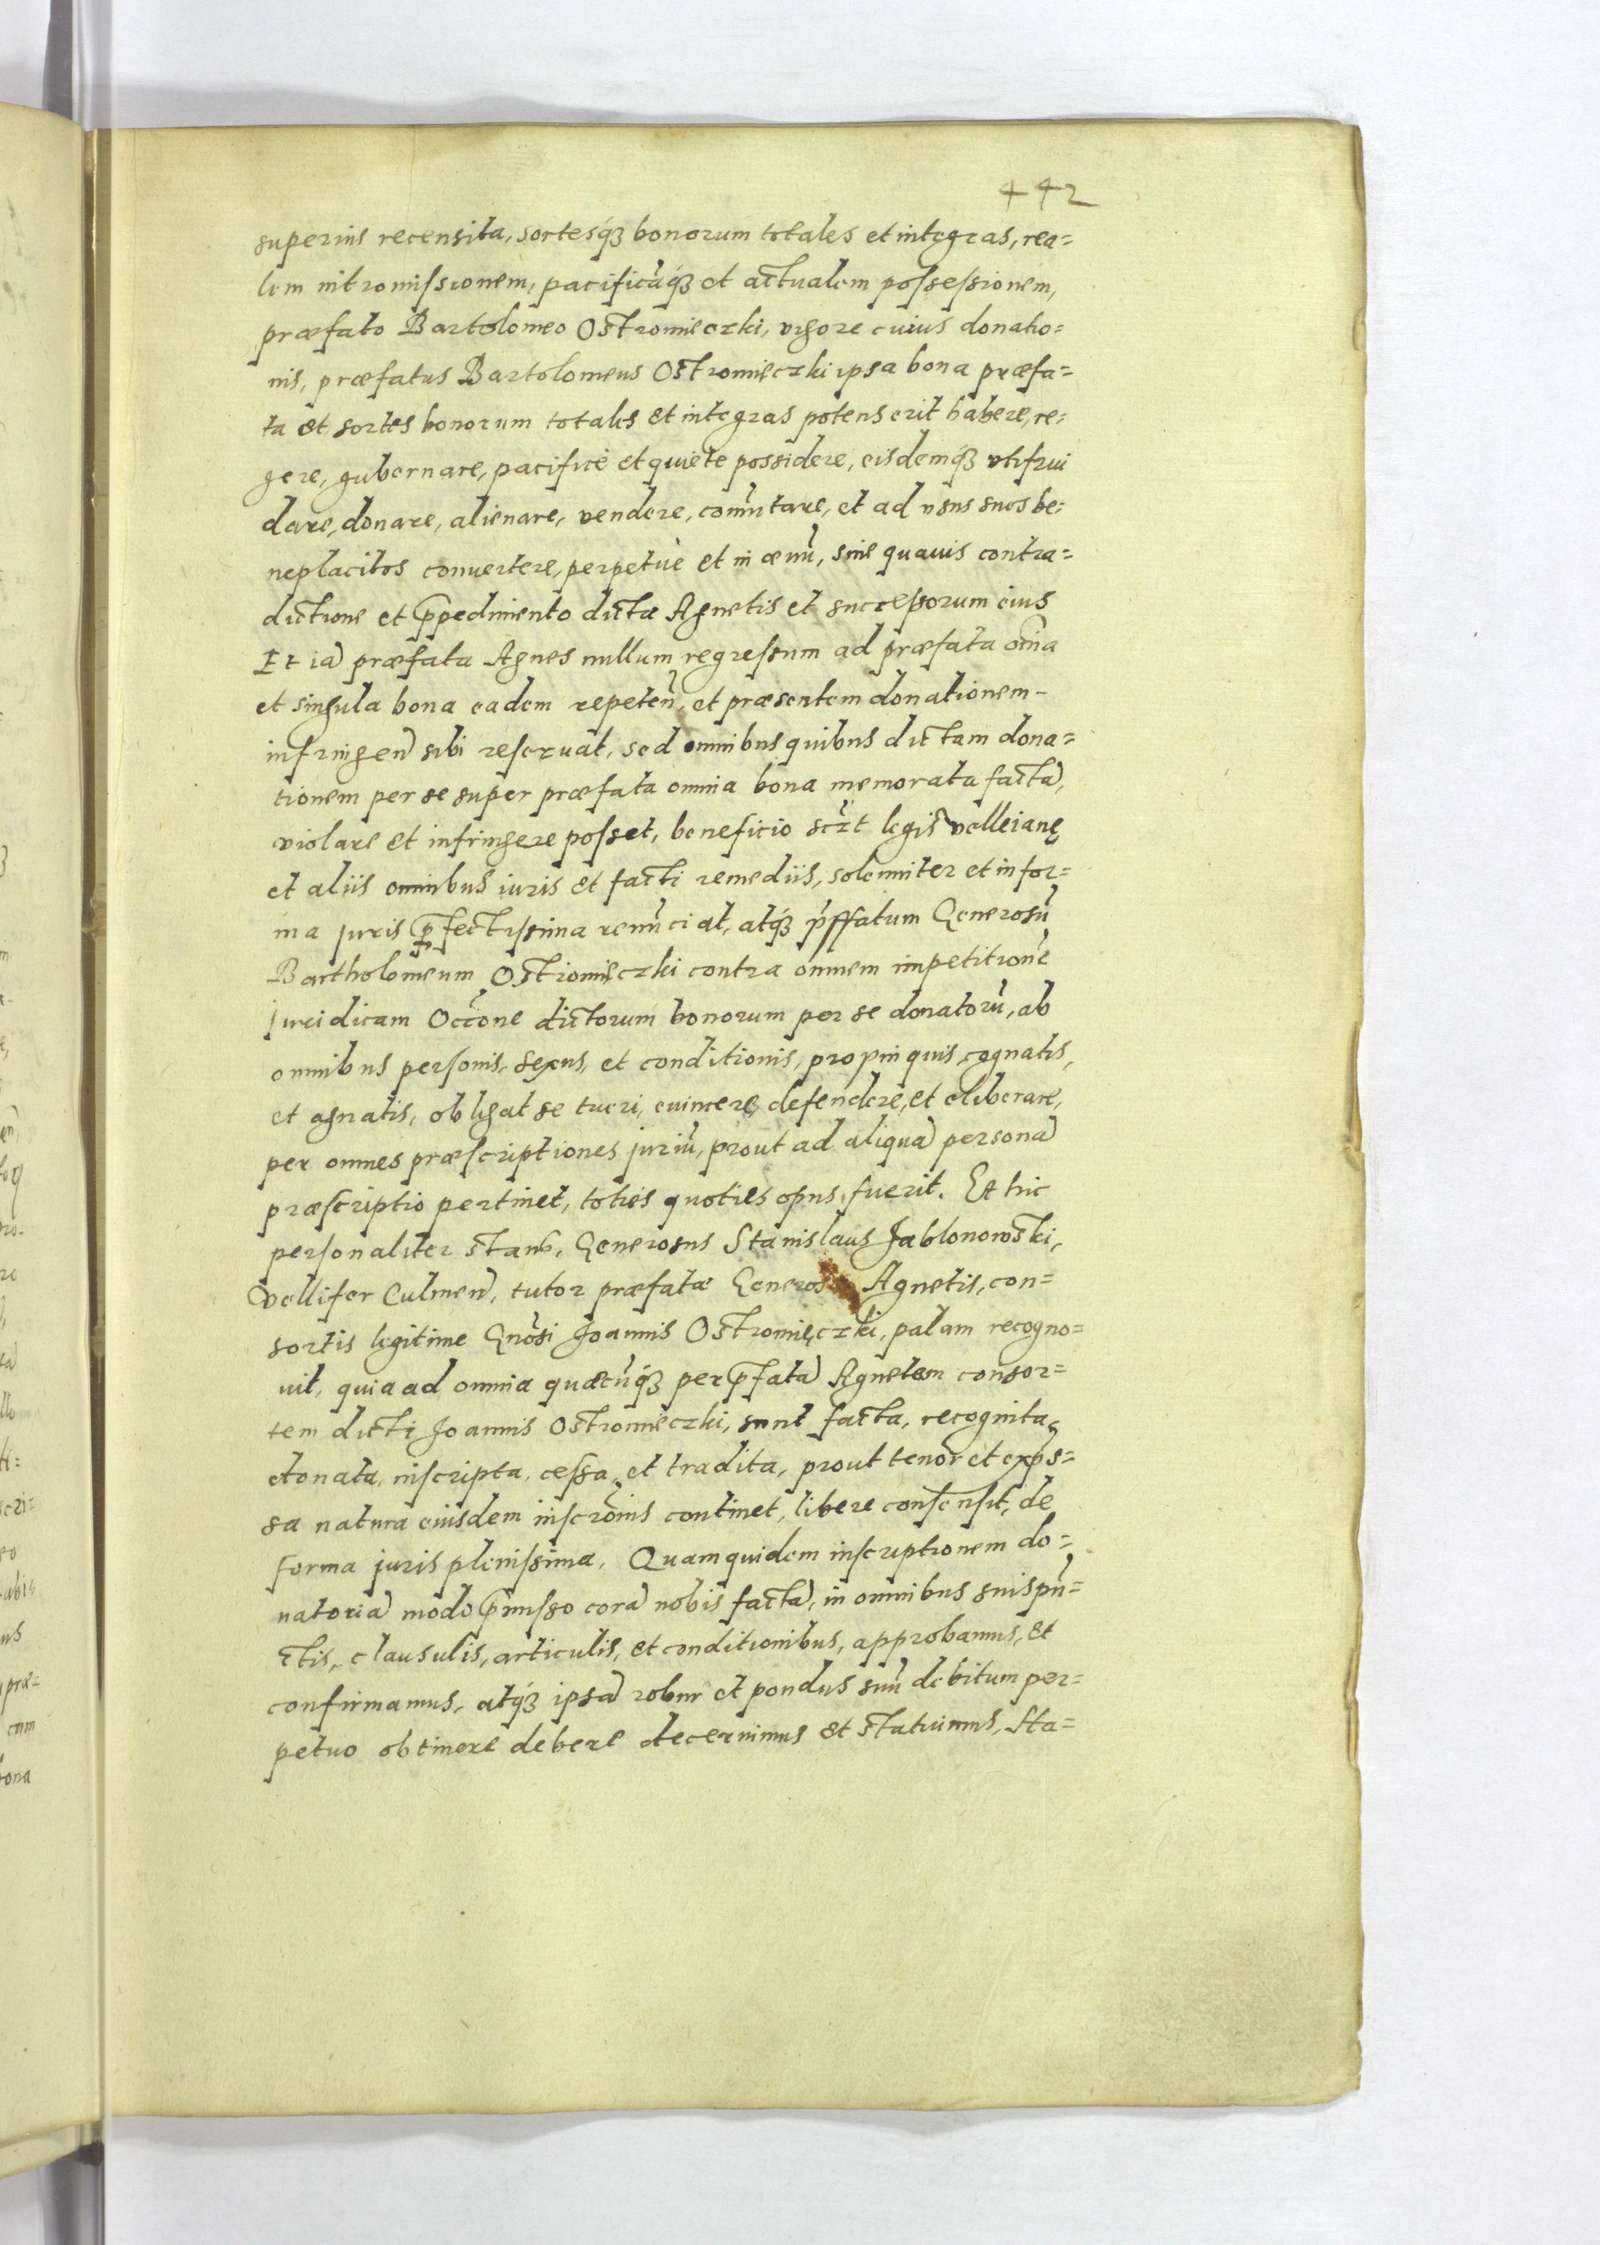 442
superius recensita, sortesq́ꝫ bonorum totales et integras, rea=
lem intromissionem, pacificūq́ꝫ et actualem possessionem,
præfato Bartolomeo Ostromieczki, vigore cuius donatio=
nis, præfatus Bartolomeus Ostromięczki ipsa bona præfa=
ta et sortes bonorum totales et integras potens erit habere, re=
gere, gubernare, pacificè et quiete possidere, eisdemq́ꝫ vtifrui
dare, donare, alienare, vendere, com̃utare, et ad vsus suos be=
neplacitos conuertere, perpetuè et in æuũ, sine quauis contra=
dictione et p̃pedimento dictæ Agnetis et successorum eius
Et iã præfata Agnes nullum regressum ad præfata om̃ia
et singula bona eadem repeten̄, et præsentem donationem
infringen̄ sibi reseruat, sed omnibus quibus dictam dona=
tionem per se super præfata omnia bona memorata factã,
violare et infringere posset, beneficio sc̃rt legis velleianę
et aliis omnibus iuris et facti remediis, solenniter et in for=
ma juris ꝑfectissima renũciat, atq́ꝫ p̃ffatum Generosũ
Bartholomeum Ostromięczki contra omnem impetitionẽ
juridicam Occ̃one dictorum bonorum per se donatorũ, ab
omnibus personis, sexus, et conditionis, propinquis, cognatis,
et agnatis, obligat se tueri, euincere, defendere, et eliberare,
per omnes præscriptiones juriũ, prout ad aliquã personã
præscriptio pertinet, toties quoties opus fuerit. Et hic
personaliter stans, Generosus Stanislaus Jablonowski,
Vellifer Culmen̄, tutor præfatæ Generosæ Agnetis, con=
sortis legitime Gñosi Joannis Ostromięczki, palam recogno=
uit, quia ad omnia quæcũq́ꝫ per p̃fatã Agnetem consor=
tem dicti Joannis Ostromieczki, sunt facta, recognita,
donata, inscripta, cessa, et tradita, prout tenor et exp̃s=
sa natura eiusdem inscr̃onis continet, libere consensit, de
forma juris plenissima. Quamquidem inscriptionem do=
natoriã modo p̃misso corã nobis factã, in omnibus suis pũ=
ctis, clausulis, articulis, et conditionibus, approbamus, et
confirmamus, atq́ꝫ ipsã robur et pondus suũ debitum per=
petuo obtinere debere decernimus et statuimus, Sta=